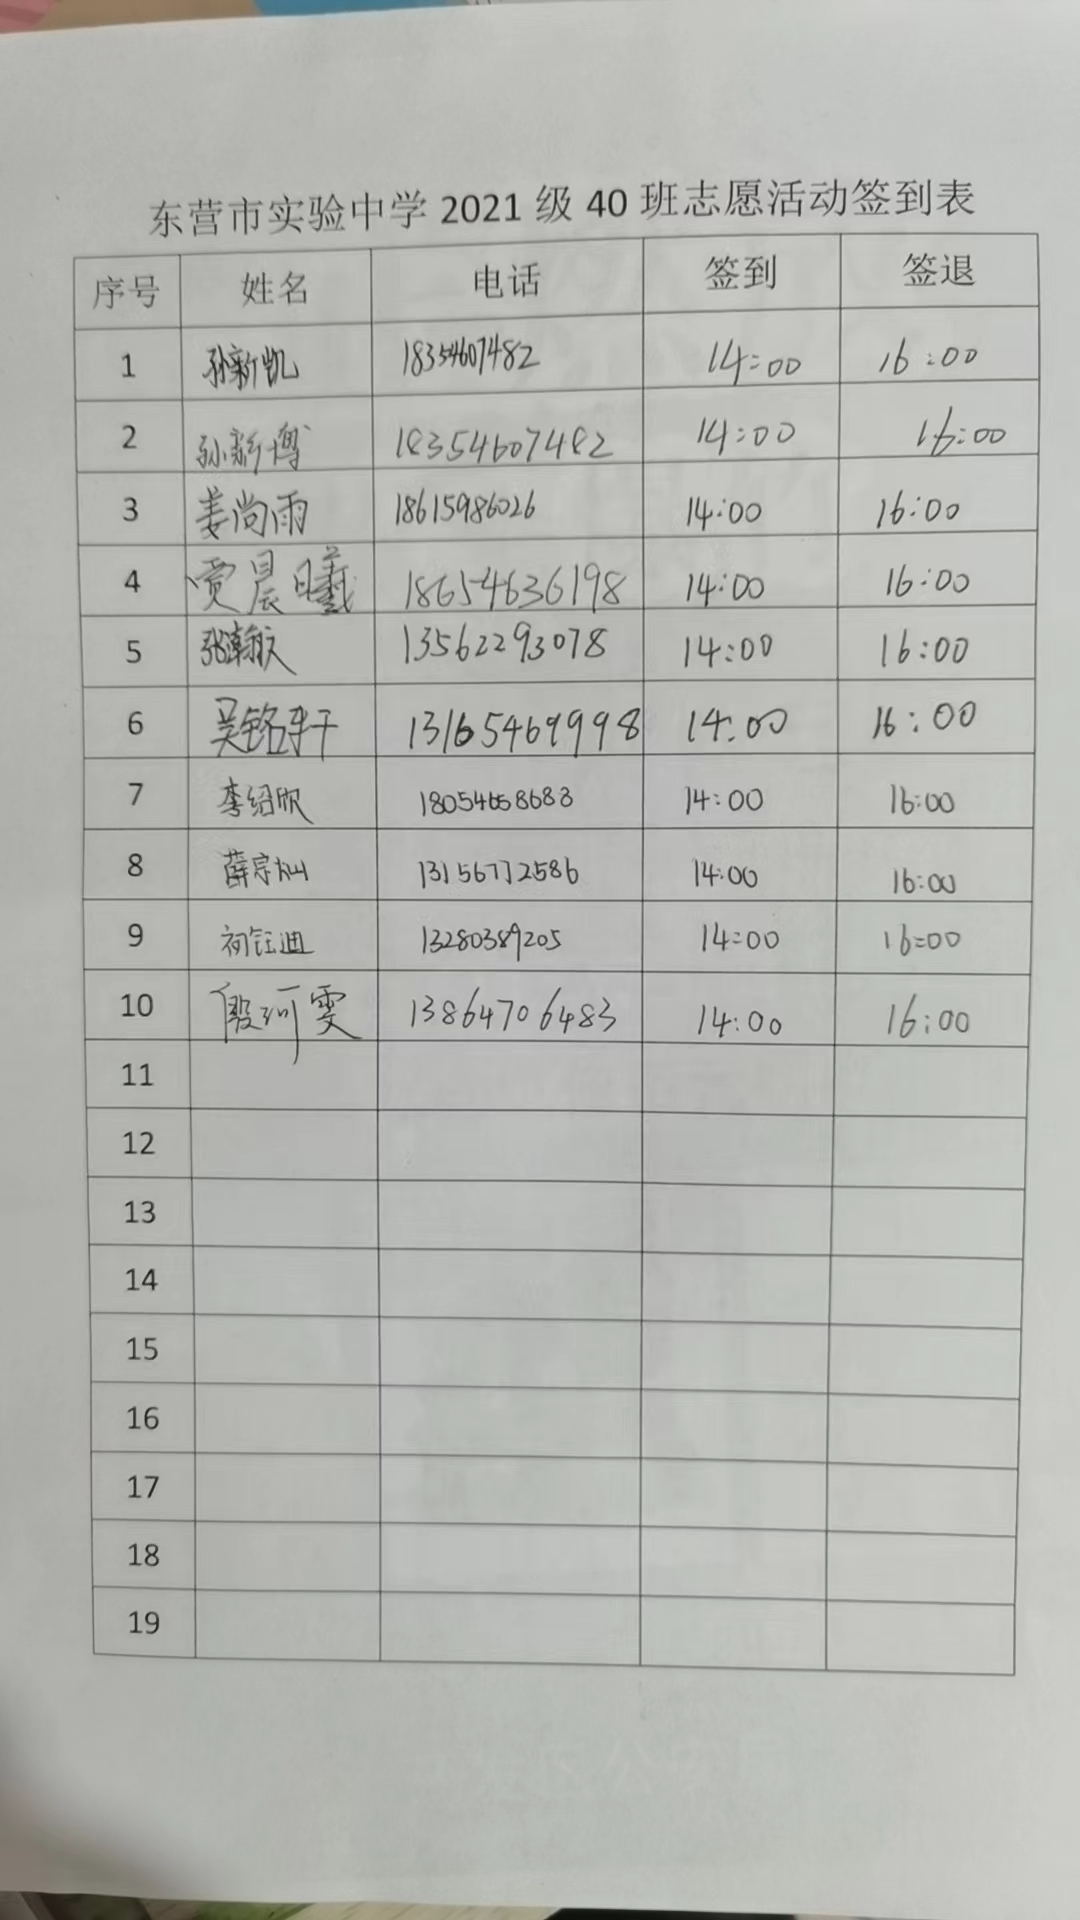 东营市实验中学 2021 级 40 班志愿活动签到表
序号 姓名 电话 签到 签退
1 孙新凯 18354607482 14:00 16:00
2 孙新博 18354607482 14:00 16:00
3 姜尚雨 18615986026 14:00 16:00
4 贾晨曦 18654636198 14:00 16:00
5 张瀚文 13562293078 14:00 16:00
6 吴铭轩 13165469998 14:00 16:00
7 李绍欣 18054658688 14:00 16:00
8 薛宗灿 13156772586 14:00 16:00
9 初钰迪 13280389205 14:00 16:00
10 殷珂雯 13864706483 14:00 16:00
11
12
13
14
15
16
17
18
19